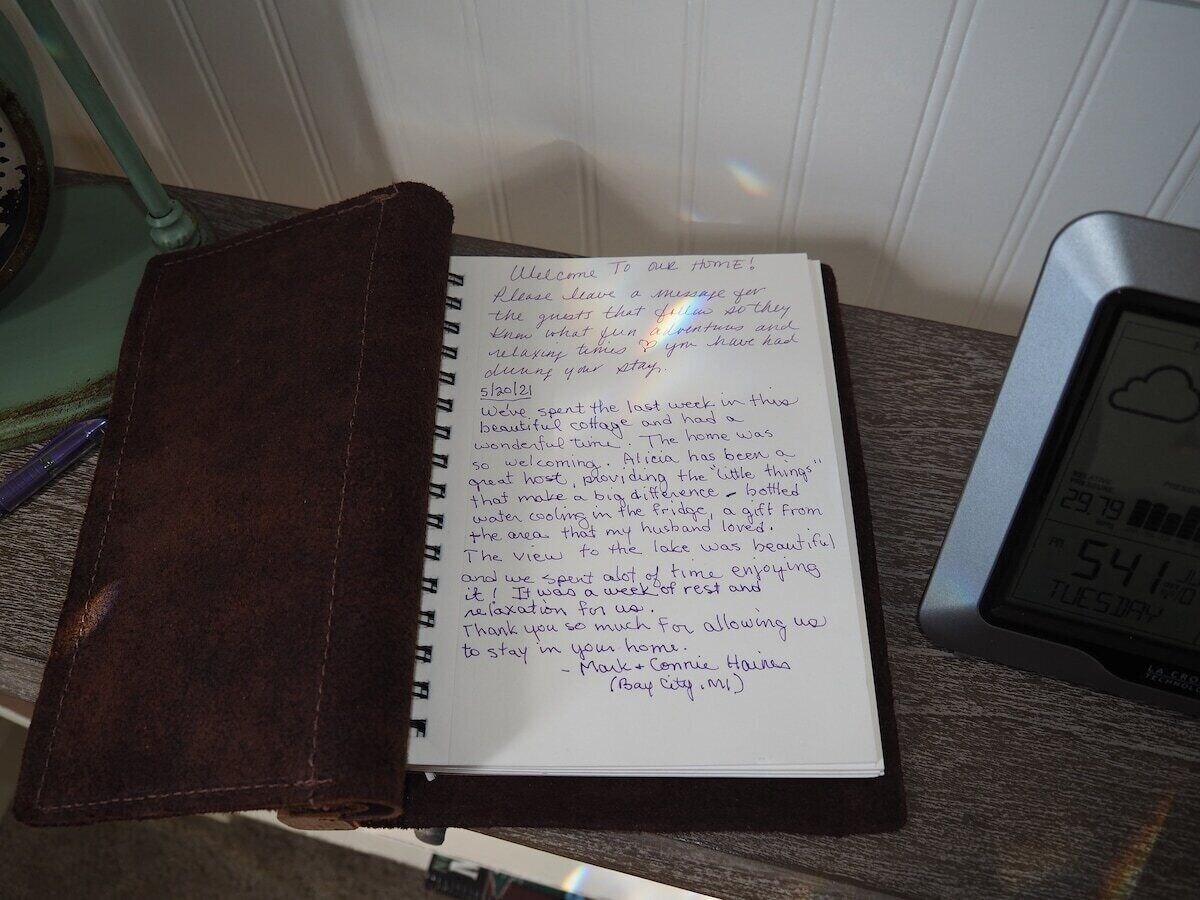 Welcome To our Home!
Please leave a message for
the guests that follow so they
know what fun adventures and
relaxing times ♡ you have had
during your stay.
5/20/21
We've spent the last week in this
beautiful cottage and had a
wonderful time. The home was
so welcoming. Alicia has been a
great host, providing the "little things"
that make a big difference - bottled
water cooling in the fridge, a gift from
the area that my husband loved.
The view to the lake was beautiful
and we spent alot of time enjoying
it! It was a week of rest and
relaxation for us.
Thank you so much for allowing us
to stay in your home.
- Mark + Connie Haines
(Bay City, MI)
29.79
PM
541
TUESDAY
LA CRO
TECHNO